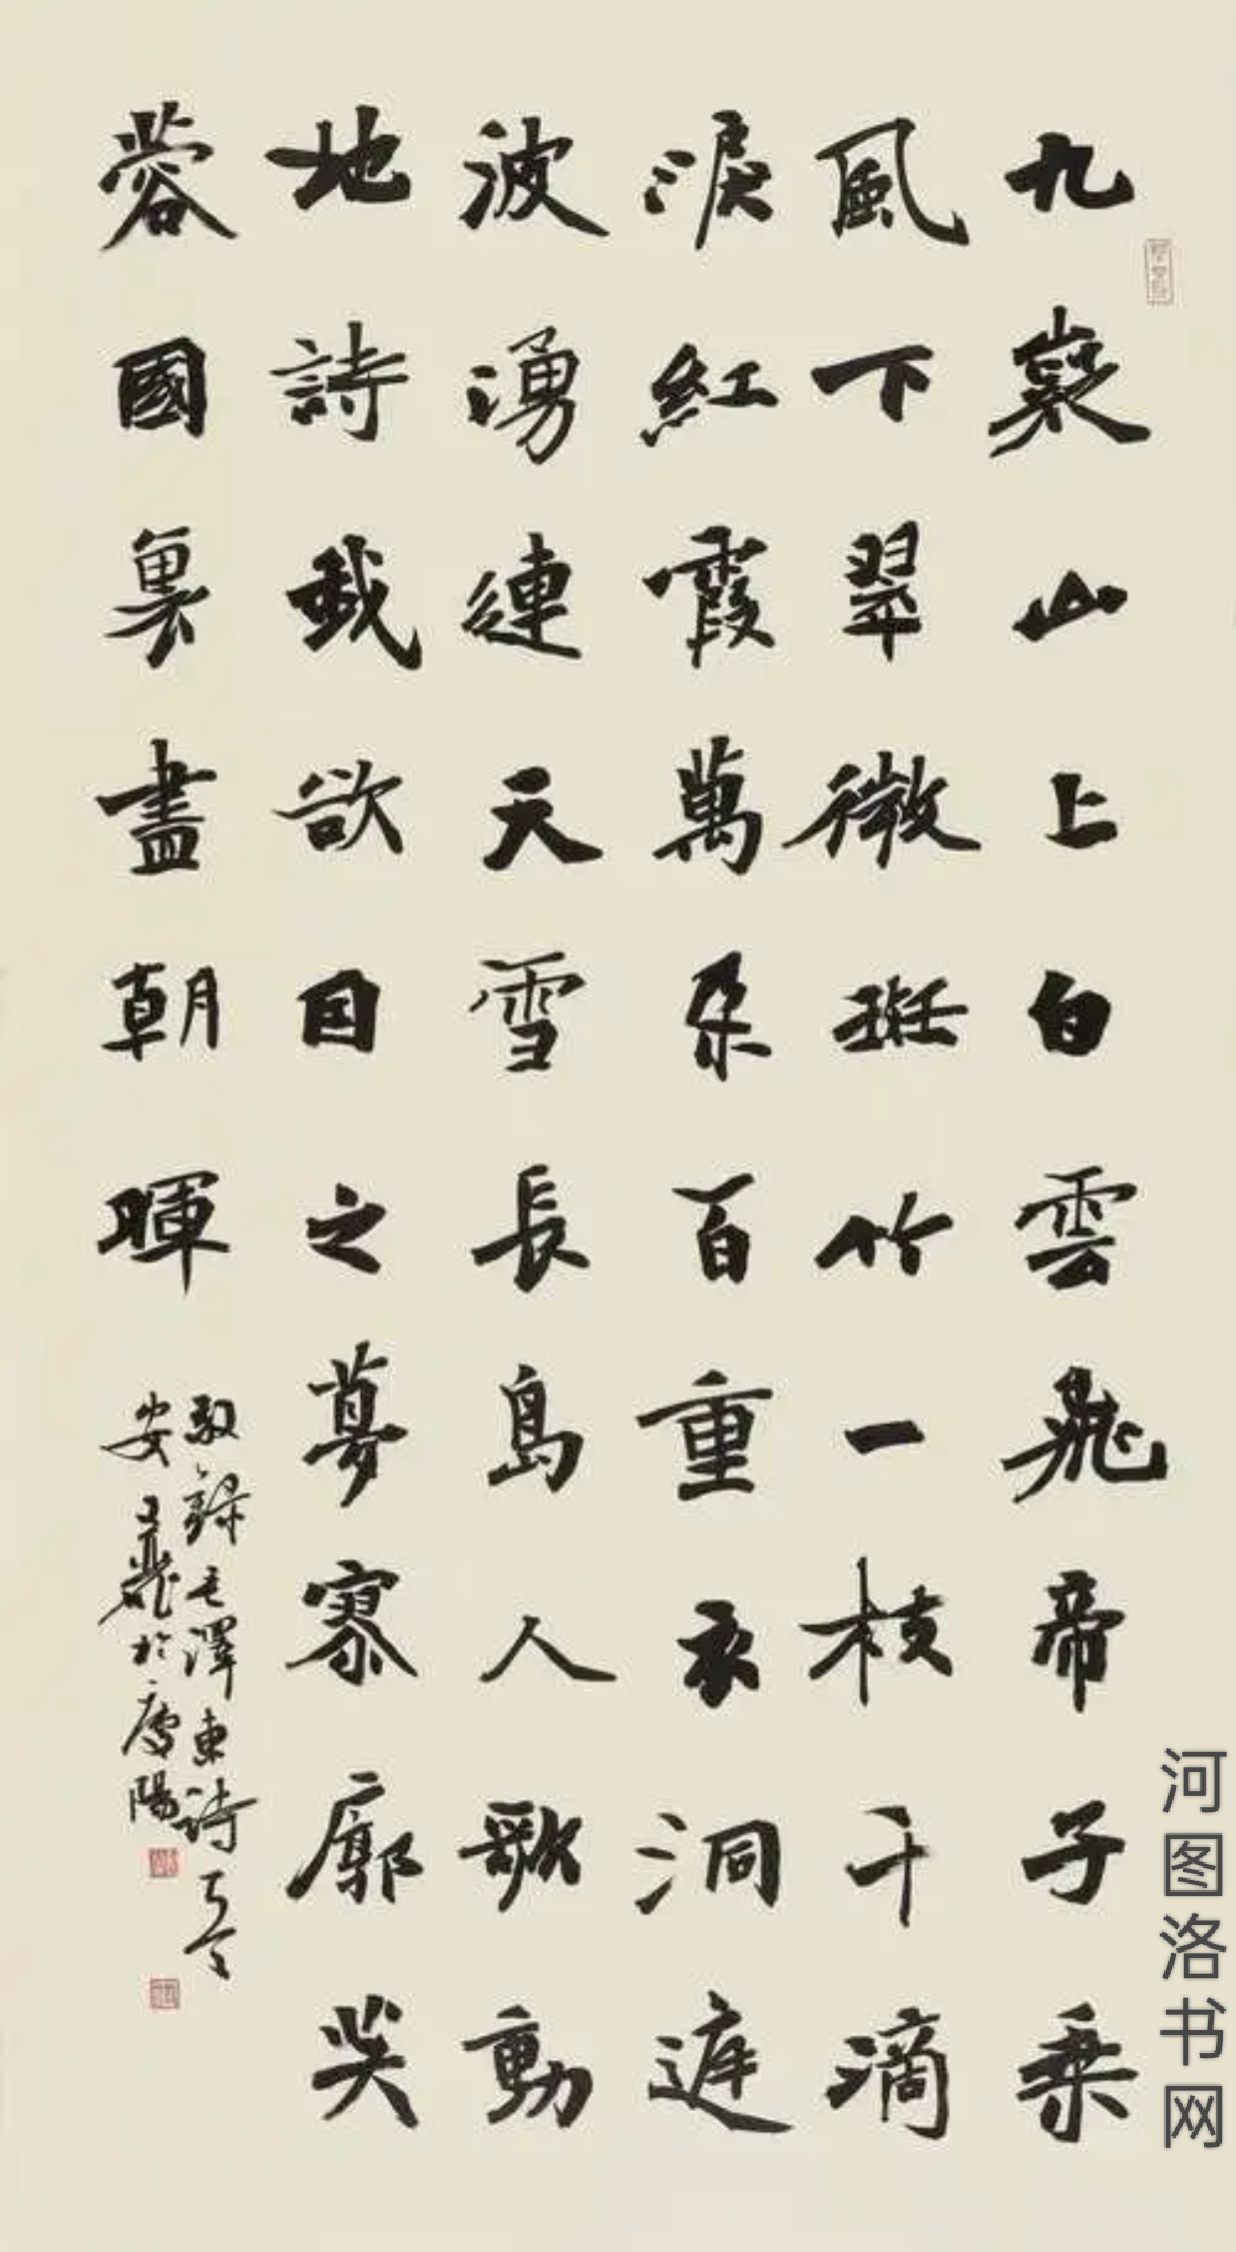 九嶷山上白雲飛帝子乘
風下翠微斑竹一枝千滴
淚紅霞萬朵百重衣洞庭
波湧連天雪長島人歌動
地詩我欲因之夢寥廓芙
蓉國裏盡朝暉
敬錄毛澤東詩
安於陽
河图洛书网